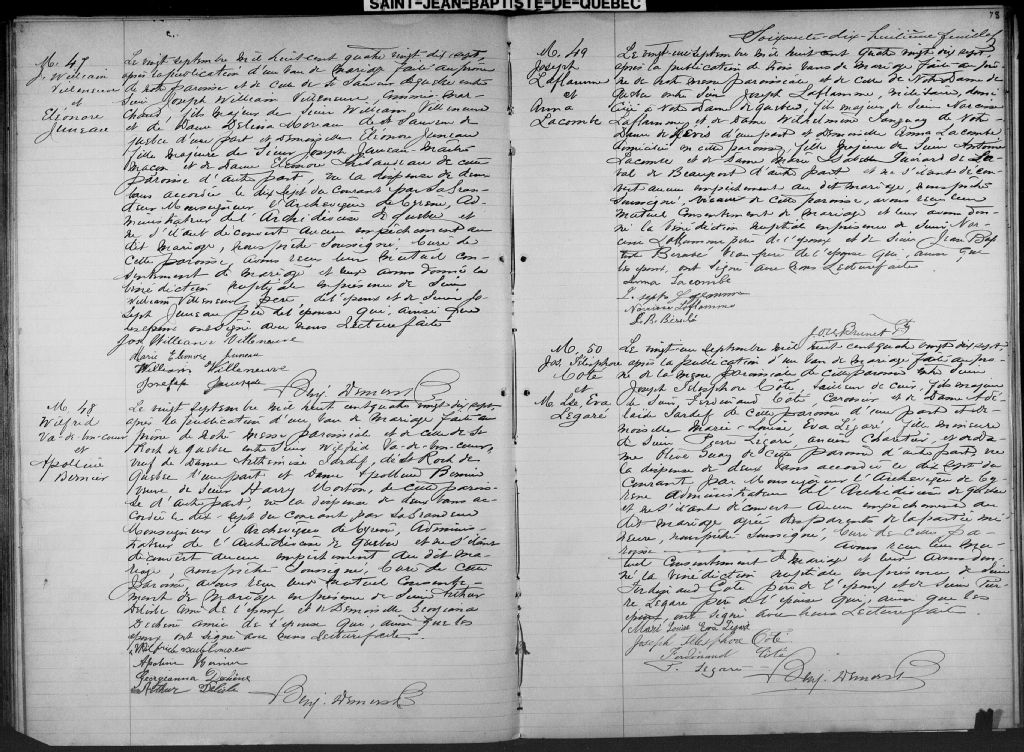 SAINT-JEAN-BAPTISTE-DE-QUÉBEC
M. 47
J. William
Villeneuve
et
Eléonore
Juneau
Le vingt septembre mil huit cent quatre vingt dix sept,
après la publication d'un ban de mariage faite au prône
de notre paroisse et de celle de St Sauveur de Québec entre
Sieur Joseph William Villeneuve, commis mar-
chand, fils majeur de Sieur William Villeneuve
et de Dame Delina Moreau de St Sauveur de
Québec d'une part et Demoiselle Eléonore Juneau
fille majeure de Sieur Joseph Juneau maître
maçon et de Dame Eléonore de cette
paroisse d'autre part, vu la dispense de deux
bans accordée le dix sept du courant par Sa Gran-
deur Monseigneur l'Archevêque de Cyrène, Ad-
ministrateur de l'Archidiocèse de Québec et
ne s'étant découvert aucun empêchement au
dit mariage, nous prêtre soussigné, Curé de
cette paroisse, avons reçu leur mutuel con-
sentiment de mariage et leur avons donné la
bénédiction nuptiale en présence de Sieur
William Villeneuve père de l'époux et de Sieur Jo-
seph Juneau père de l'épouse qui, ainsi que
les époux ont signé avec nous. Lecture faite.
Jos William Villeneuve
Marie Eleonore Juneau
William Villeneuve
Joseph Juneau
Benj. Demers Ptre
M. 48
Wilfrid
Va-de-bon-coeur
et
Apolline
Bernier
Le vingt septembre mil huit cent quatre vingt dix sept,
après la publication d'un ban de mariage faite au
prône de notre messe paroissiale et de celle de St
Roch de Québec entre Sieur Wilfrid Va-de-bon-coeur,
veuf de Dame Arthémise Tardif, de St Roch de
Québec d'une part et Dame Apolline Bernier
veuve de Sieur Harry Morton, de cette parois-
se d'autre part, vu la dispense de deux bans ac-
cordée le dix-sept du courant par Sa Grandeur
Monseigneur l'Archevêque de Cyrène, Adminis-
trateur de l'Archidiocèse de Québec et ne s'étant
découvert aucun empêchement au dit ma-
riage, nous prêtre soussigné, Curé de cette
paroisse avons reçu leur mutuel consente-
ment de mariage en présence de Sieur Arthur
Delisle ami de l'époux et de Demoiselle Georgiana
amie de l'épouse qui, ainsi que les
époux ont signé avec nous. Lecture faite.
Wilfrid
Apoline Bernier
Georgeanna
Arthur Delisle
Benj. Demers Ptre
78
Soixante dix-huitième feuillet
M. 49
Joseph
Laflamme
et
Anna
Lacombe
Le vingt-un septembre mil huit cent quatre vingt dix sept
après la publication de trois bans de mariage faite au prô-
ne de notre messe paroissiale et de celle de Notre Dame de
Québec entre Sieur Joseph Laflamme, militaire, domi-
cilié à Notre Dame de Québec, fils majeur de Sieur Narcisse
Laflamme et de Dame Wilhelmine Tanguay de Notre-
Dame de Lévis d'une part et Demoiselle Anna Lacombe
domiciliée en cette paroisse, fille majeure de Sieur Antoine
Lacombe et de Dame Marie Isabelle de La-
val de Beauport d'autre part et ne s'étant décou-
vert aucun empêchement au dit mariage, nous prêtre
soussigné, vicaire de cette paroisse, avons reçu leur
mutuel consentement de mariage et leur avons don-
né la bénédiction nuptiale en présence de Sieur Nar-
cisse Laflamme père de l'époux et de Sieur Jean Bap-
tiste Bérubé beau frère de l'épouse qui, ainsi que
les époux, ont signé avec nous. Lecture faite.
Anna Lacombe
Joseph Laflamme
Narcisse Laflamme
J. B. Bérubé
Brunet Ptre
M. 50
Jos. Télesphore
Coté
et
M. Lse. Eva
Legaré
Le vingt un septembre mil huit cent quatre vingt dix sept
après la publication d'un ban de mariage faite au prô-
ne de la messe paroissiale de cette paroisse entre Sieur
Joseph Télesphore Coté, tailleur de cuir, fils majeur
de Sieur Ferdinand Coté, Corroyeur et de Dame Adé-
laïde Tardif de cette paroisse d'une part et De-
moiselle Marie-Louise Eva Legaré, fille mineure
de Sieur Pierre Legaré, ancien Charretier, et de Da-
me Olive Guay de cette paroisse d'autre part, vu
la dispense de deux bans accordée le dix sept du
courant par Monseigneur l'Archevêque de Cy-
rène administrateur de l'Archidiocèse de Québec
et ne s'étant découvert aucun empêchement au
dit mariage agréé des parents de la partie mi-
neure, nous prêtre soussigné, Curé de cette pa-
roisse avons reçu leur mu-
tuel consentement de mariage et leur avons don-
né la bénédiction nuptiale en présence de Sieur
Ferdinand Coté père de l'époux et de Sieur Pier-
re Legaré père de l'épouse qui, ainsi que les
époux, ont signé avec nous. Lecture faite
Marie Louise Eva Legaré
Joseph Télesphore Coté
Ferdinand Coté
P. Legaré
Benj. Demers Ptre